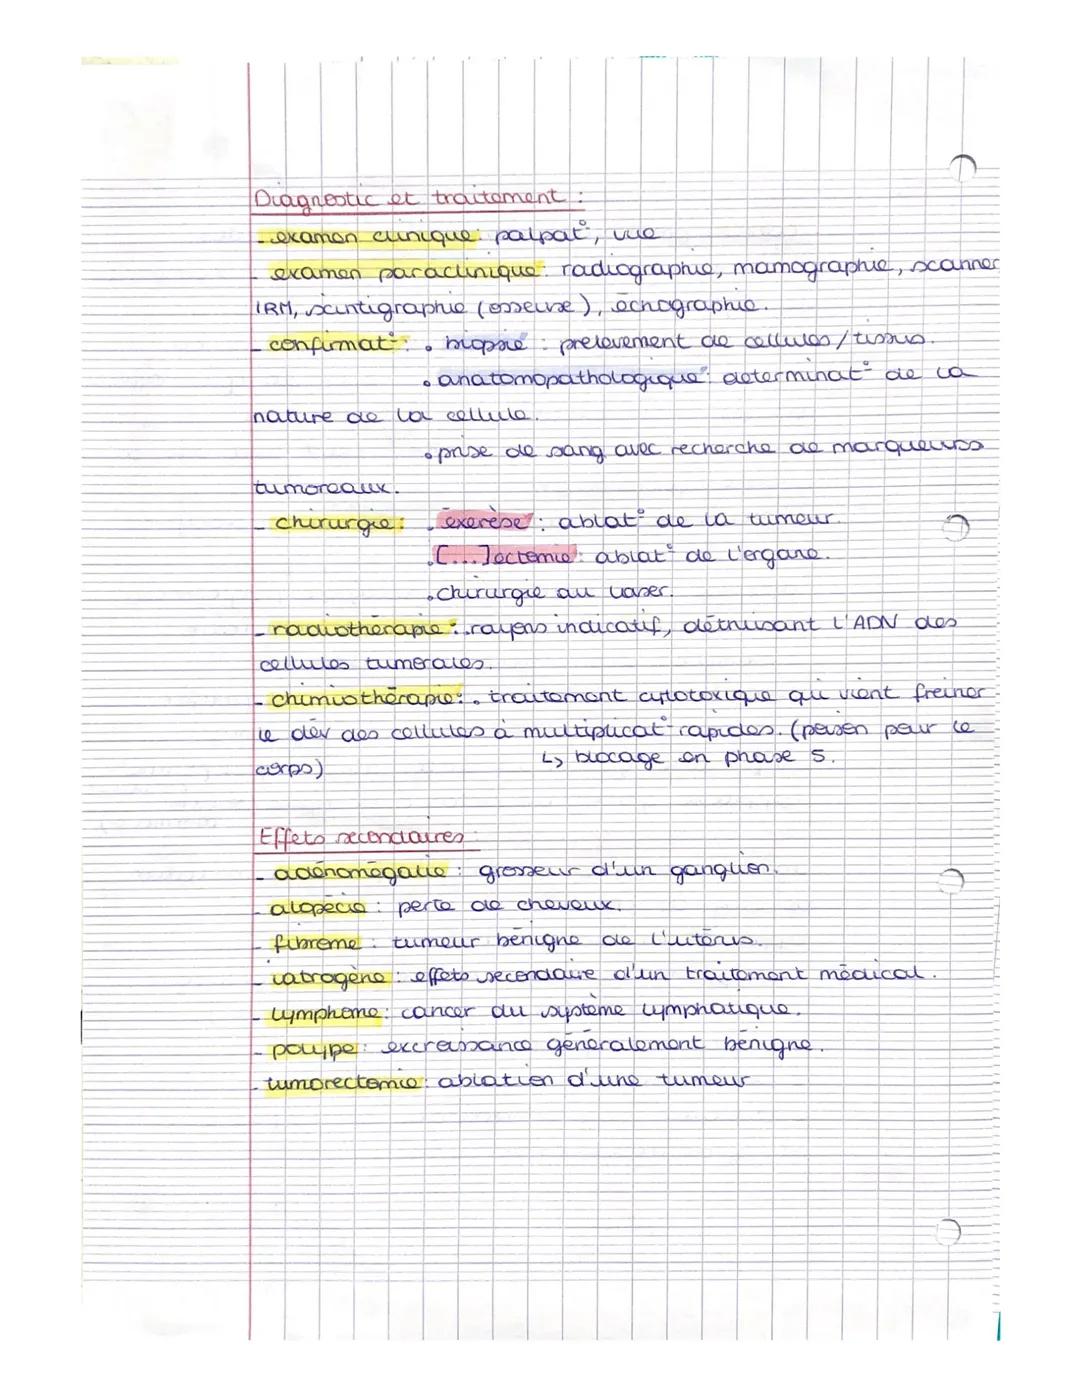 Diagnostic et traitement :
- examen clinique : palpat°, vue
- examen paraclinique : radiographie, mamographie, scanner
IRM, scintigraphie (osseuse), échographie.
- confirmat° : . biopsie : prelevement de cellules/tissus.
. anatomopathologique : determinat° de la
nature de la cellule.
. prise de sang avec recherche de marqueurs
tumoreaux.
- chirurgie : . éxerèse : ablat° de la tumeur.
. [...]ectomie : ablat° de l'organe.
. chirurgie au laser.
- radiothérapie : . rayons indicatif, détruisant l'ADN des
cellules tumorales.
- chimiothérapie : . traitement cytotoxique qui vient freiner
le dév des cellules à multiplicat° rapides. (poison pour le
corps)
↳ blocage en phase S.
Effets secondaires :
- adénomégalie : grosseur d'un ganglion.
- alopécie : perte de cheveux.
- fibrome : tumeur bénigne de l'utérus.
- iatrogène : effets secondaire d'un traitement médical.
- lymphome : cancer du système lymphatique.
- polype : excraissance généralement bénigne.
- tumorectomie : ablation d'une tumeur